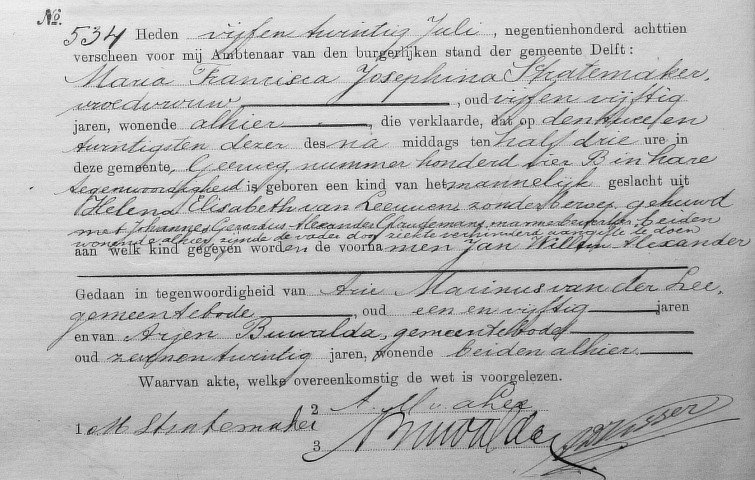 No.
534 Heden vijfentwintig Juli, negentienhonderd achttien
verscheen voor mij Ambtenaar van den burgerlijken stand der gemeente Delft:
Maria Francisca Josephina Stratemaker,
vroedvrouw, oud vijfenvijftig
jaren, wonende alhier, die verklaarde, dat op den tweeen
twintigsten dezer des na middags ten half drie ure in
deze gemeente, Geerweg, nummer honderd vier B in hare
tegenwoordigheid is geboren een kind van het mannelijk geslacht uit
Helena Elisabeth van Leeuwen, zonder beroep, gehuwd
met Johannes Gerardus Alexander, beiden
wonende alhier, zijnde de vader door ziekte verhinderd aangifte te doen
aan welk kind gegeven worden de voornamen Jan Willem Alexander
Gedaan in tegenwoordigheid van Arie Marinus van der Lee,
gemeentebode, oud eenenvijftig jaren
en van Arjen Buwalda, gemeentebode,
oud zevenentwintig jaren, wonende beiden alhier.
Waarvan akte, welke overeenkomstig de wet is voorgelezen.
1 M Stratemaker 2 A. M. v. d. Lee
3 Buwalda